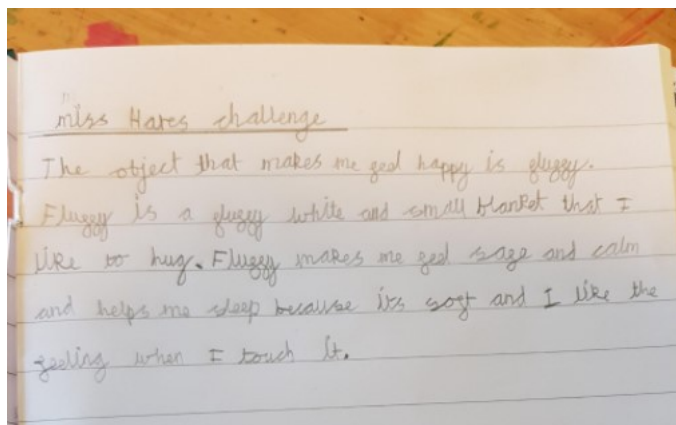 miss Hares challenge
The object that makes me feel happy is fluffy.
Fluffy is a fluffy white and small blanket that I
like to hug. Fluffy makes me feel safe and calm
and helps me sleep because its soft and I like the
feeling when I touch it.